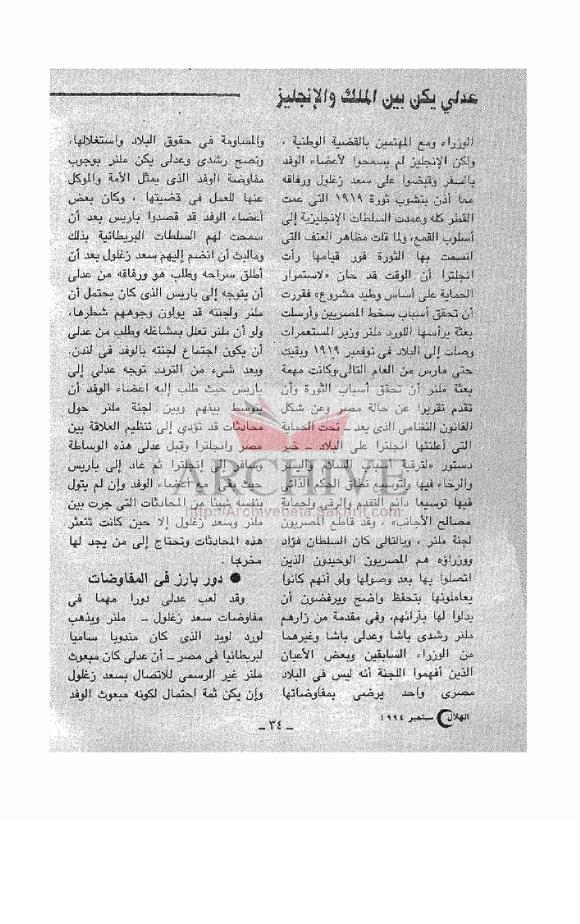 عدلي يكن بين الملك والإنجليز
الوزراء ومع المهتمين بالقضية الوطنية ،
ولكن الإنجليز لم يسمحوا لأعضاء الوفد
بالسفر وقبضوا على سعد زغلول ورفاقه
مما أذن بنشوب ثورة ١٩١٩ التى عمت
القطر كله وعمدت السلطات الإنجليزية إلى
أسلوب القمع، ولما قلت مظاهر العنف التى
اتسمت بها الثورة فور قيامها رأت
انجلترا أن الوقت قد حان «لاستمرار
الحماية على أساس وطيد مشروع» فقررت
أن تحقق أسباب سخط المصريين وأرسلت
بعثة يرأسها اللورد ملنر وزير المستعمرات
وصلت إلى البلاد فى نوفمبر ١٩١٩ وبقيت
حتى مارس من العام التالى وكانت مهمة
بعثة ملنر أن تحقق أسباب الثورة وأن
تقدم تقريرا عن حالة مصر وعن شكل
القانون النظامى الذى يعد تحت الحماية
التى أعلنتها انجلترا على البلاد خير
دستور «لترقية أسباب السلام واليسر
والرخاء فيها ولتوسيع نطاق الحكم الذاتى
فيها توسيعا دائم التقدم والرقى ولحماية
مصالح الأجانب» ، وقد قاطع المصريون
لجنة ملنر ، وبالتالى كان السلطان فؤاد
ووزراؤه هم المصريون الوحيدون الذين
اتصلوا بها بعد وصولها ولو أنهم كانوا
يعاملونها بتحفظ واضح ويرفضون أن
يدلوا لها بآرائهم، وفى مقدمة من زارهم
ملنر رشدى باشا وعدلى باشا وغيرهما
من الوزراء السابقين وبعض الأعيان
الذين أفهموا اللجنة أنه ليس فى البلاد
مصرى واحد يرضى بمفاوضاتها
والمساومة فى حقوق البلاد واستغلالها،
ونصح رشدى وعدلى يكن ملنر بوجوب
مفاوضة الوفد الذى يمثل الأمة والموكل
عنها للعمل فى قضيتها ، وكان بعض
أعضاء الوفد قد قصدوا باريس بعد أن
سمحت لهم السلطات البريطانية بذلك
ومالبث أن انضم إليهم سعد زغلول بعد أن
أطلق سراحه وطلب هو ورفاقه من عدلى
أن يتوجه إلى باريس الذى كان يحتمل أن
ملنر ولجنته قد يولون وجوههم شطرها،
ولو أن ملنر تعلل بمشاغله وطلب من عدلى
أن يكون اجتماع لجنته بالوفد فى لندن،
وبعد شىء من التردد توجه عدلى إلى
باريس حيث طلب إليه أعضاء الوفد أن
يتوسط بينهم وبين لجنة ملنر حول
محادثات قد تؤدى إلى تنظيم العلاقة بين
مصر وانجلترا وقبل عدلى هذه الوساطة
وسافر إلى إنجلترا ثم عاد إلى باريس
أعضاء الوفد وإن لم يتول
بنفسه شيئا من المحادثات التى جرت بين
ملنر وسعد زغلول إلا حين كانت تتعثر
هذه المحادثات وتحتاج إلى من يجد لها
مخرجا .
● دور بارز فى المفاوضات
وقد لعب عدلى دورا مهما فى
مفاوضات سعد زغلول ـ ملنر ويذهب
لورد لويد الذى كان مندوبا ساميا
لبريطانيا فى مصر ـ أن عدلى كان مبعوث
ملنر غير الرسمى للاتصال بسعد زغلول
وإن يكن ثمة احتمال لكونه مبعوث الوفد
الهلال سبتمبر ١٩٩٤
ـ ٣٤ ـ
ARCHIVE
http://Archivebeta.Sakhrit.com